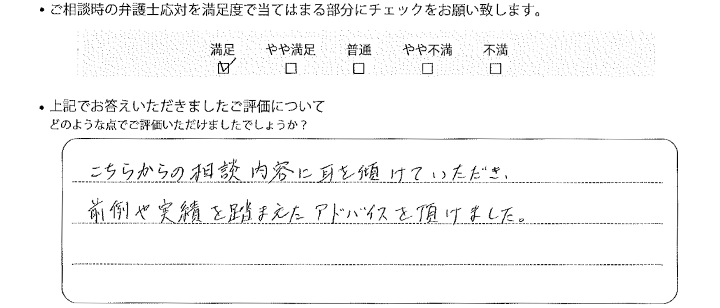 • ご相談時の弁護士応対を満足度で当てはまる部分にチェックをお願い致します。
満足 やや満足 普通 やや不満 不満
☑ ☐ ☐ ☐ ☐
• 上記でお答えいただきましたご評価について
どのような点でご評価いただけましたでしょうか？
こちらからの相談内容に耳を傾けていただき、
前例や実績を踏まえたアドバイスを頂けました。